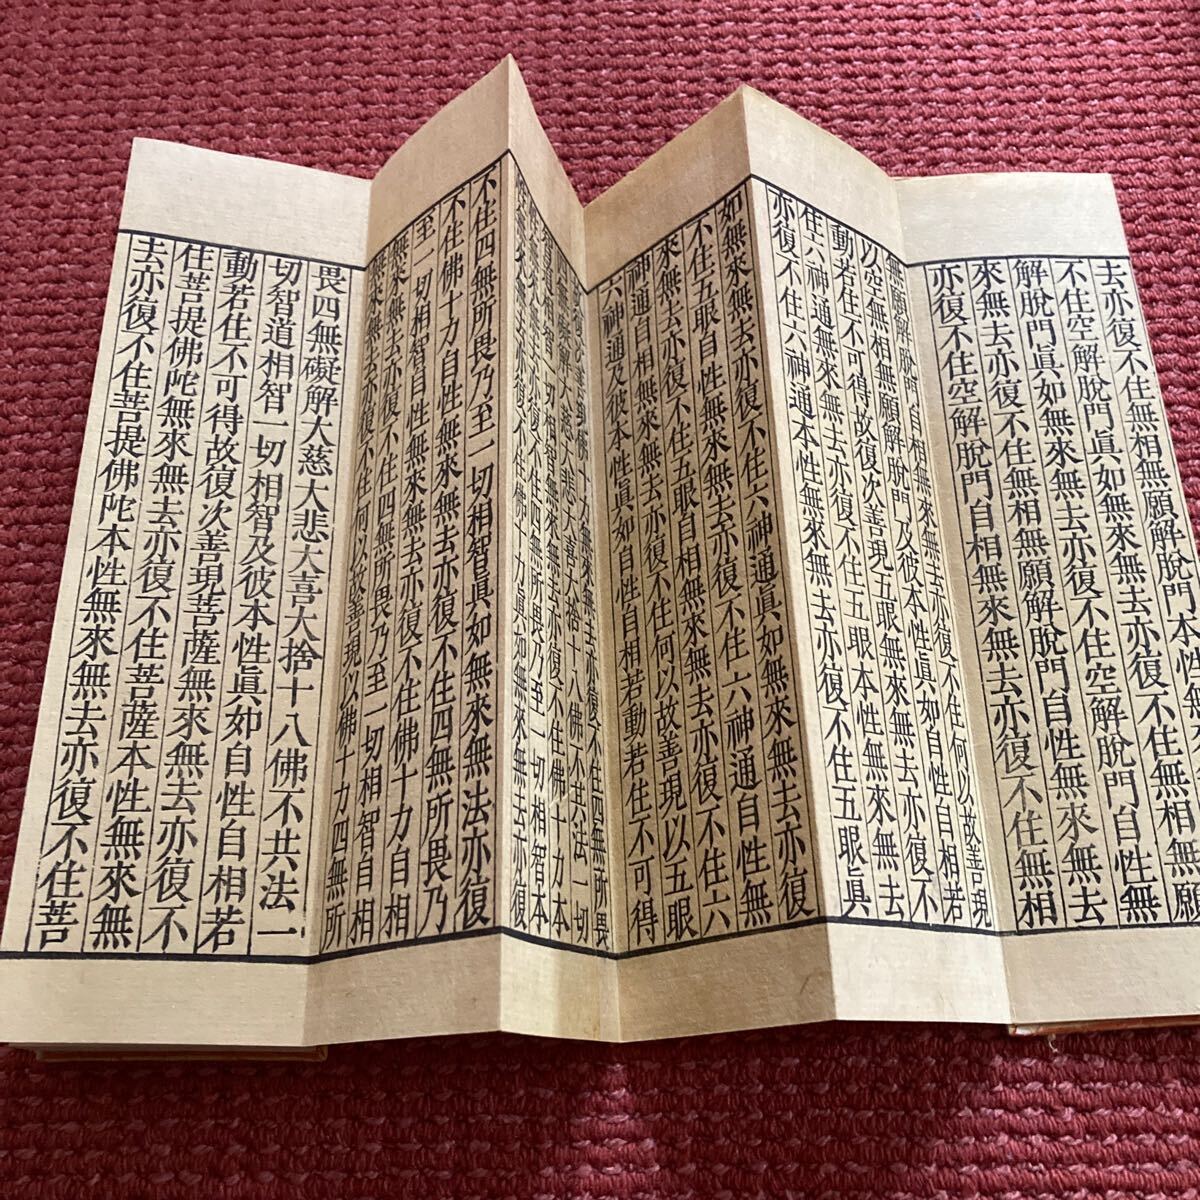 去亦復不住無相無願解脫門本性無
不住空解脫門眞如無來無去亦復不住無相無願
解脫門眞如無來無去亦復不住空解脫門自性無
來無去亦復不住無相無願解脫門自性無來無去
亦復不住空解脫門自相無來無去亦復不住無相
無願解脫門自相無來無去亦復不住何以故善現
以空無相無願解脫門及彼本性眞如自性自相若
動若住不可得故復次善現五眼無來無去亦復不
住六神通無來無去亦復不住五眼本性無來無去
亦復不住六神通本性無來無去亦復不住五眼眞
如無來無去亦復不住六神通眞如無來無去亦復
不住五眼自性無來無去亦復不住六神通自性無
來無去亦復不住五眼自相無來無去亦復不住六
神通自相無來無去亦復不住何以故善現以五眼
六神通及彼本性眞如自性自相若動若住不可得
復次善現佛十力無來無去亦復不住四無所畏
無礙解大慈大悲大喜大捨十八佛不共法一切
智道相智一切相智無來無去亦復不住佛十力本
性無來無去亦復不住四無所畏乃至一切相智本
性無來無去亦復不住佛十力眞如無來無去亦復
不住四無所畏乃至一切相智眞如無來無去亦復
不住佛十力自性無來無去亦復不住四無所畏乃
至一切相智自性無來無去亦復不住佛十力自相
無來無去亦復不住四無所畏乃至一切相智自相
無來無去亦復不住何以故善現以佛十力四無所
畏四無礙解大慈大悲大喜大捨十八佛不共法一
切智道相智一切相智及彼本性眞如自性自相若
動若住不可得故復次善現菩薩無來無去亦復不
住菩提佛陀無來無去亦復不住菩薩本性無來無
去亦復不住菩提佛陀本性無來無去亦復不住菩